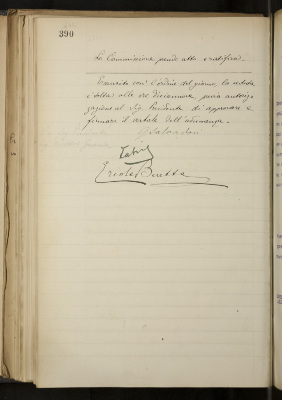 390
La Commissione prende atto e ratifica.
Esaurito così l'ordine del giorno la seduta
è tolta alle ore diciannove previa autoriz
zazione al Sig. Presidente di approvare e
firmare il verbale dell'adunanza.
Ercole Beretta